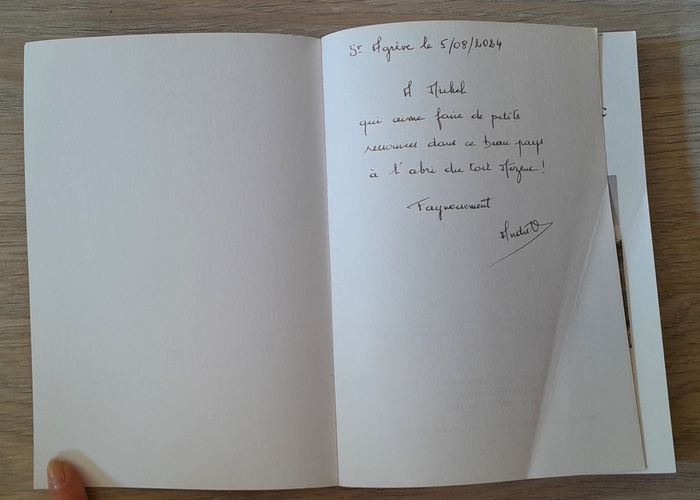 St Agrève le 5/08/2024
A Michel
qui aime faire de petits
ressources dans ce beau pays
à l'abri du toit Mézenc !
Faynoisement
André